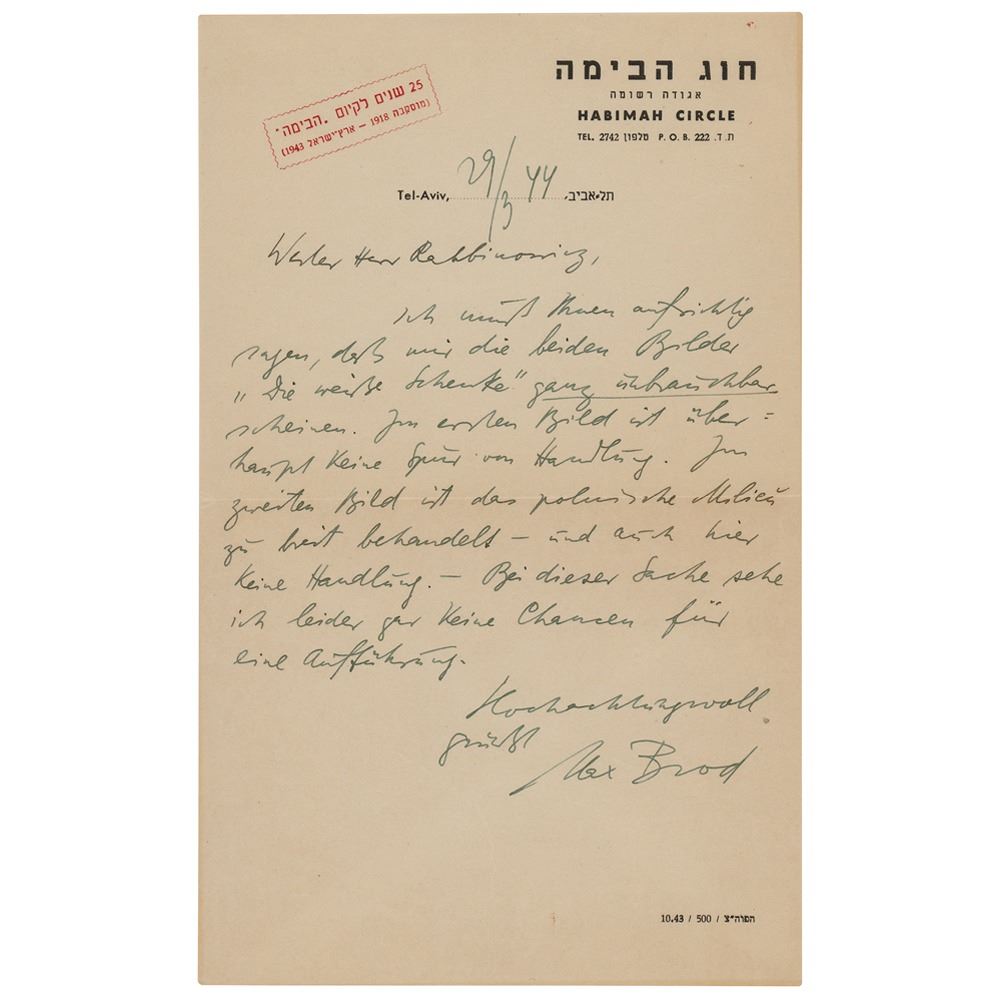 חוג הבימה
אגודה רשומה
HABIMAH CIRCLE
TEL. 2742 טלפון P. O. B. 222 ת. ד.
25 שנים לקיום "הבימה"
(מוסקבה 1918 – ארץ־ישראל 1943)
Tel-Aviv, 29/3 44 תל-אביב,
Werter Herr Rabbinowicz,
Ich muß Ihnen aufrichtig
sagen, daß mir die beiden Bilder
„Die weiße Schenke“ ganz unbrauchbar
scheinen. Im ersten Bild ist über=
haupt keine Spur von Handlung. Im
zweiten Bild ist das polnische Milieu
zu breit behandelt – und auch hier
keine Handlung. – Bei dieser Sache sehe
ich leider gar keine Chancen für
eine Aufführung.
Hochachtungsvoll
grüßt
Max Brod
10.43 / 500 / הפוה״צ